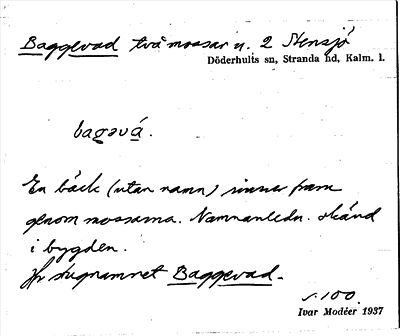 Baggevad två mossar u. 2 Stensjö
Döderhults sn, Stranda hd, Kalm. l.
bagəvá.
En bäck (utan namn) rinner fram
genom mossarna. Namnanledn. okänd
i bygden.
Jfr stugnamnet Baggevad.
s. 100.
Ivar Modéer 1937